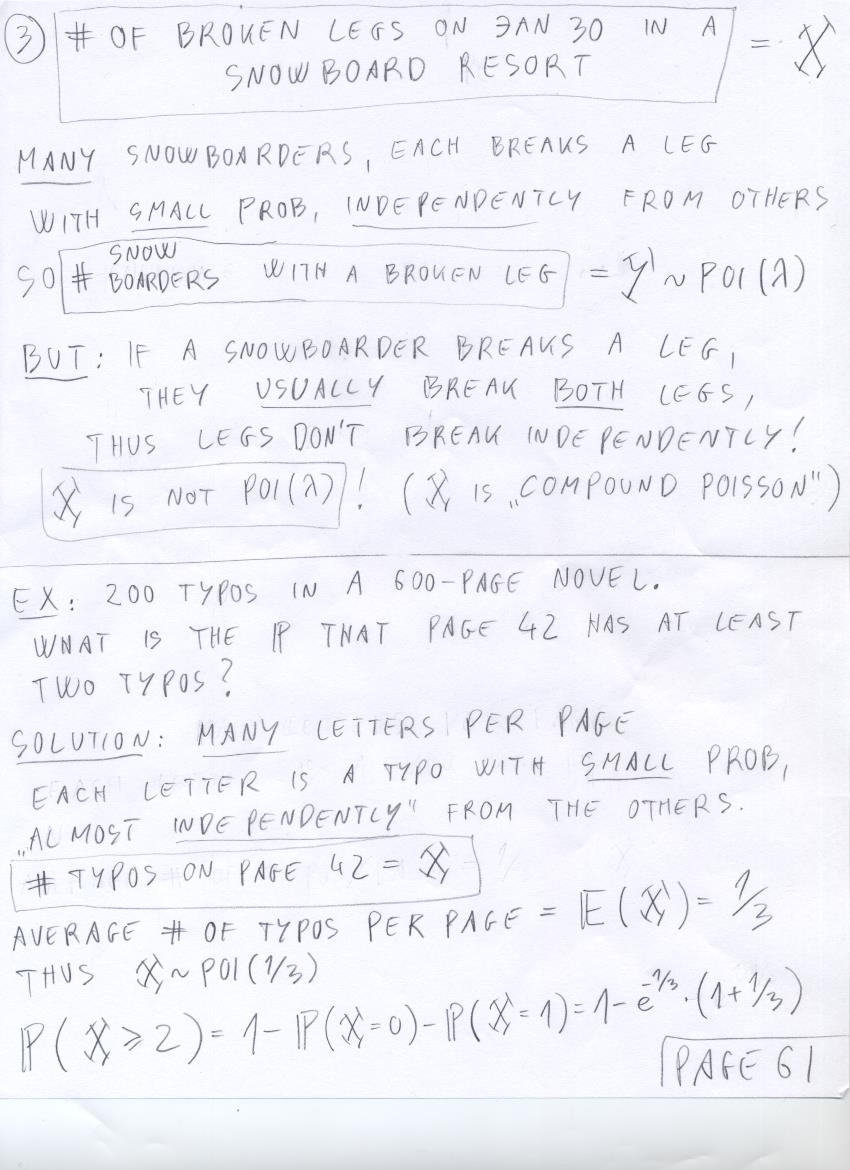 ③ # OF BROKEN LEGS ON JAN 30 IN A
SNOWBOARD RESORT = X
MANY SNOWBOARDERS, EACH BREAKS A LEG
WITH SMALL PROB, INDEPENDENTLY FROM OTHERS
SO # SNOW BOARDERS WITH A BROKEN LEG = Y ~ POI(λ)
BUT: IF A SNOWBOARDER BREAKS A LEG,
THEY USUALLY BREAK BOTH LEGS,
THUS LEGS DON'T BREAK INDEPENDENTLY!
X IS NOT POI(λ)! (X IS „COMPOUND POISSON")
EX: 200 TYPOS IN A 600-PAGE NOVEL.
WHAT IS THE ℙ THAT PAGE 42 HAS AT LEAST
TWO TYPOS?
SOLUTION: MANY LETTERS PER PAGE
EACH LETTER IS A TYPO WITH SMALL PROB,
„ALMOST INDEPENDENTLY" FROM THE OTHERS.
# TYPOS ON PAGE 42 = X
AVERAGE # OF TYPOS PER PAGE = 𝔼(X) = 1/3
THUS X ~ POI(1/3)
ℙ(X ≥ 2) = 1 - ℙ(X = 0) - ℙ(X = 1) = 1 - e^{-1/3} · (1 + 1/3)
PAGE 61